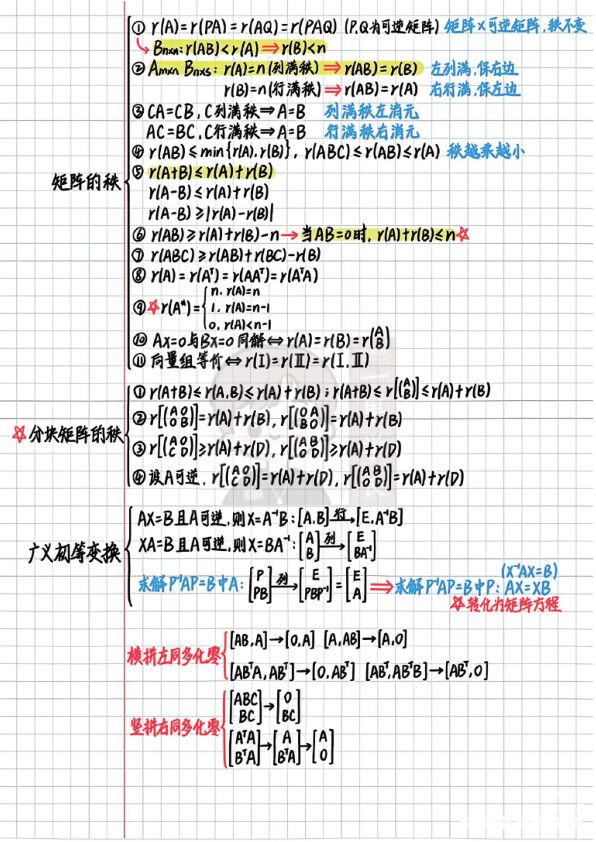 矩阵的秩
① r(A)=r(PA)=r(AQ)=r(PAQ) (P,Q为可逆矩阵) 矩阵×可逆矩阵,秩不变
↳ Bn×n: r(AB)<r(A) ⇒ r(B)<n
② Am×n Bn×s: r(A)=n(列满秩) ⇒ r(AB)=r(B) 左列满,保右边
r(B)=n(行满秩) ⇒ r(AB)=r(A) 右行满,保左边
③ CA=CB, C列满秩 ⇒ A=B 列满秩左消元
AC=BC, C行满秩 ⇒ A=B 行满秩右消元
④ r(AB)≤min{r(A),r(B)}, r(ABC)≤r(AB)≤r(A) 秩越乘越小
⑤ r(A+B)≤r(A)+r(B)
r(A-B)≤r(A)+r(B)
r(A-B)≥|r(A)-r(B)|
⑥ r(AB)≥r(A)+r(B)-n → 当AB=0时, r(A)+r(B)≤n ☆
⑦ r(ABC)≥r(AB)+r(BC)-r(B)
⑧ r(A)=r(Aᵀ)=r(AAᵀ)=r(AᵀA)
⑨ ☆ r(A*)={n, r(A)=n
1, r(A)=n-1
0, r(A)<n-1
⑩ Ax=0与Bx=0同解 ⇔ r(A)=r(B)=r(A B)
⑪ 向量组等价 ⇔ r(Ⅰ)=r(Ⅱ)=r(Ⅰ,Ⅱ)
☆分块矩阵的秩
① r(A+B)≤r(A,B)≤r(A)+r(B); r(A+B)≤r[(A B)]≤r(A)+r(B)
② r[(A O O B)]=r(A)+r(B), r[(O A B O)]=r(A)+r(B)
③ r[(A O C D)]≥r(A)+r(D), r[(A B O D)]≥r(A)+r(D)
④ 设A可逆, r[(A O C D)]=r(A)+r(D), r[(A B O D)]=r(A)+r(D)
广义初等变换
AX=B且A可逆,则X=A⁻¹B: [A,B] 行→ [E,A⁻¹B]
XA=B且A可逆,则X=BA⁻¹: [A B] 列→ [E BA⁻¹]
求解P⁻¹AP=B中A: [P PB] 列→ [E PBP⁻¹]=[E A] ⇒ 求解P⁻¹AP=B中P: AX=XB
(X⁻¹AX=B)
☆转化为矩阵方程
横拼左同多化零
[AB,A]→[O,A] [A,AB]→[A,O]
[ABᵀA,ABᵀ]→[O,ABᵀ] [ABᵀ,ABᵀB]→[ABᵀ,O]
竖拼右同多化零
[ABC BC]→[O BC]
[AᵀA BᵀA]→[A BᵀA]→[A O]